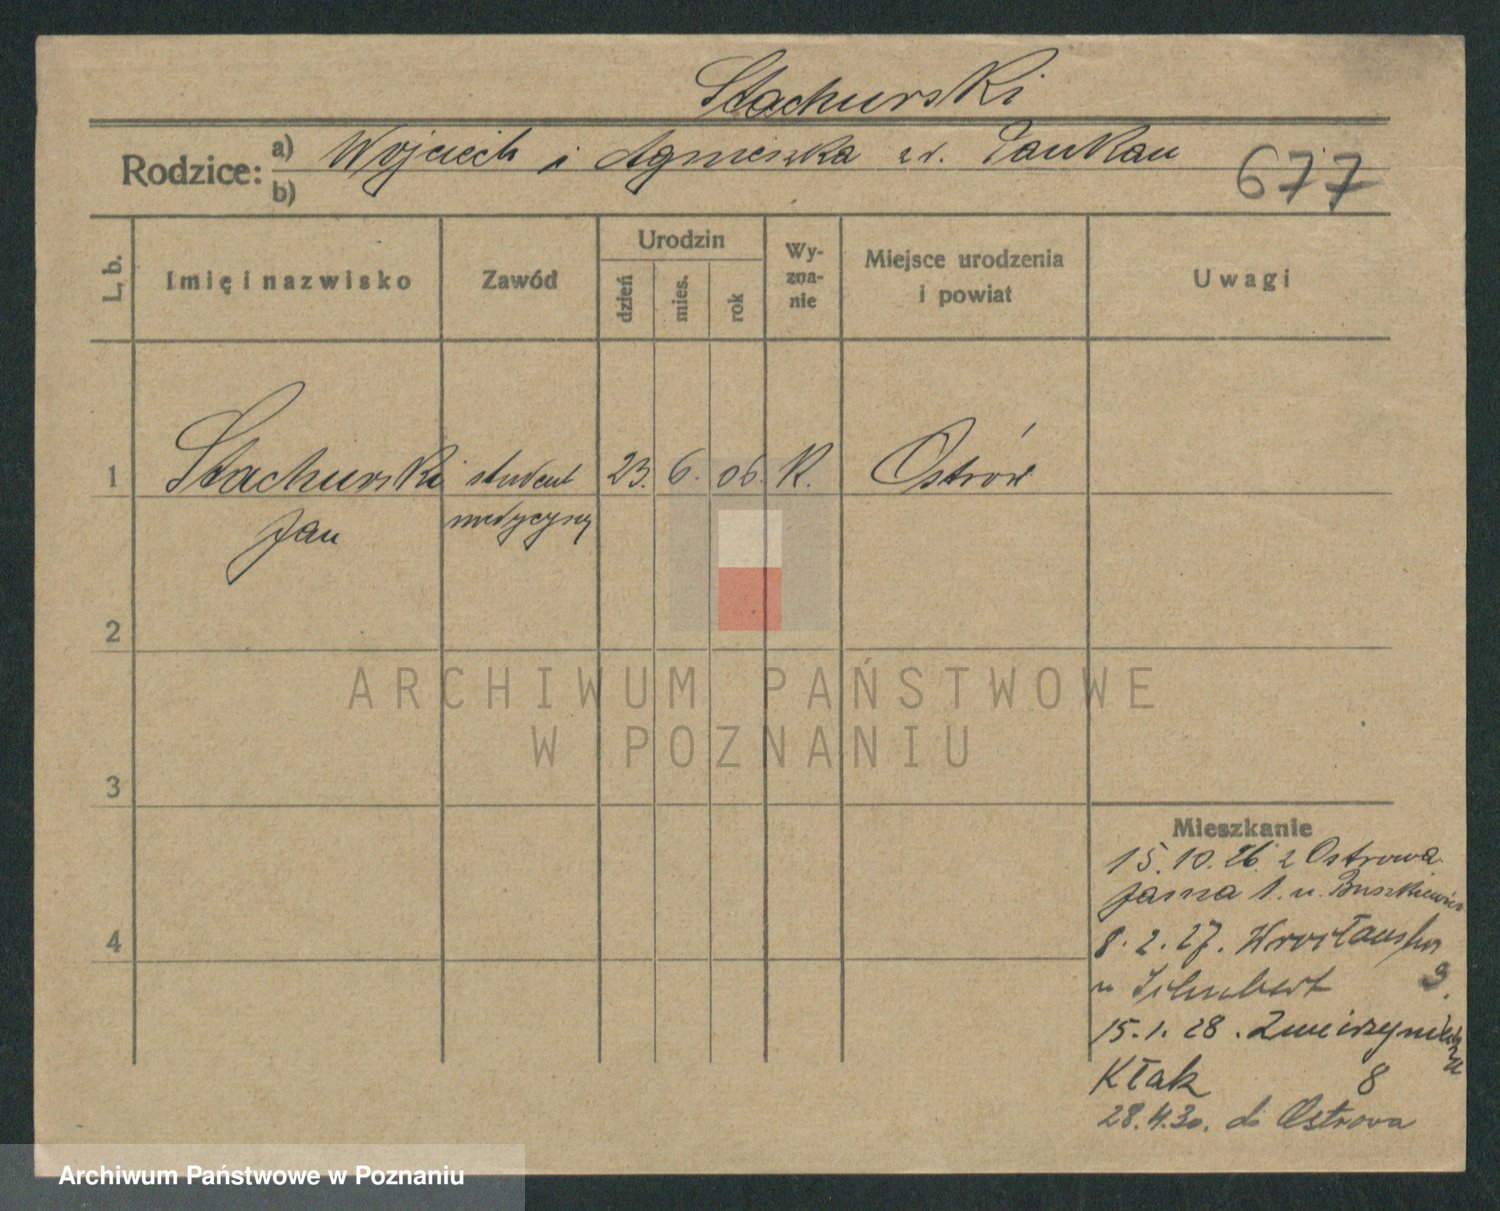 Stachurski
Rodzice: a) Wojciech i Agnieszka zd.
b)
677
L. b.
Imię i nazwisko
Zawód
Urodzin
dzień
mies.
rok
Wy-
zna-
nie
Miejsce urodzenia
i powiat
Uwagi
1 Stachurski student 23. 6. 06. K. Ostrów
Jan medycyny
2
ARCHIWUM PAŃSTWOWE
W POZNANIU
3
Mieszkanie
15.10.26. z Ostrowa
Jasna 1. u.
4
8.2.27. Wrocławska
u Schubert 9.
15.1.28.
Kłak 8
28.4.30. do Ostrowa
Archiwum Państwowe w Poznaniu